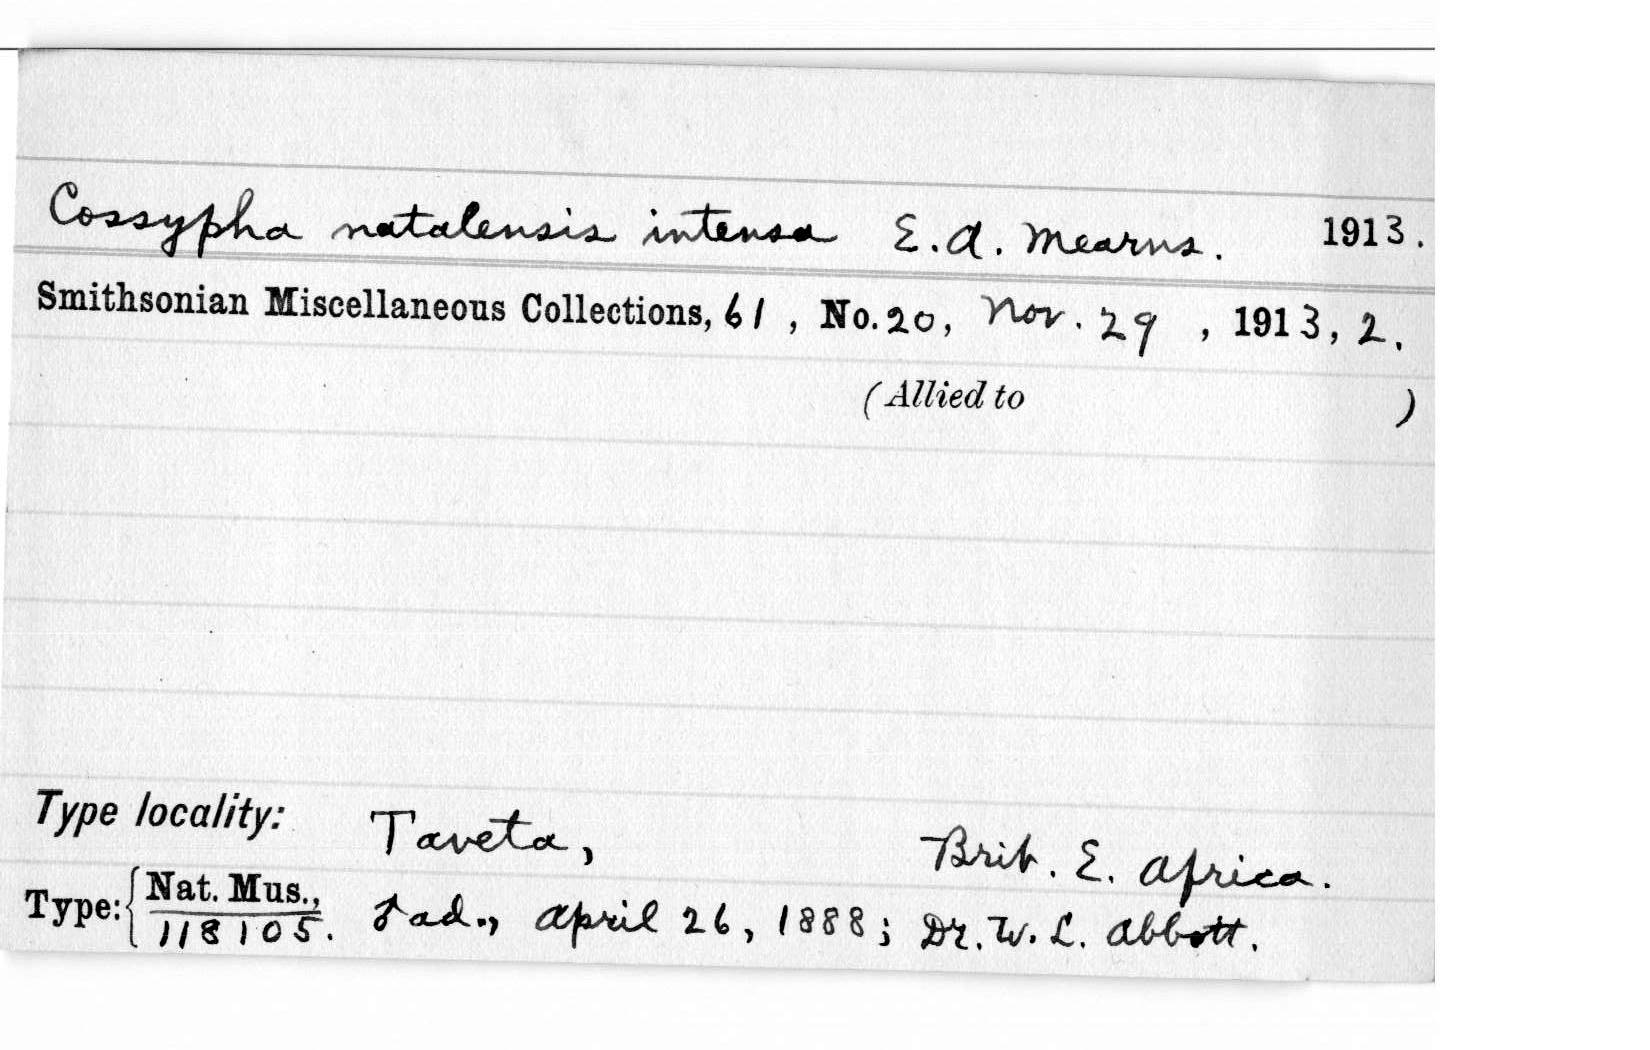 Cossypha natalensis intensa E. A. Mearns. 1913.
Smithsonian Miscellaneous Collections, 61, No. 20, Nov. 29, 1913, 2.
(Allied to )
Type locality: Taveta, Brit. E. Africa.
Type: { Nat. Mus., 118105. ♂ ad., April 26, 1888; Dr. W. L. Abbott.